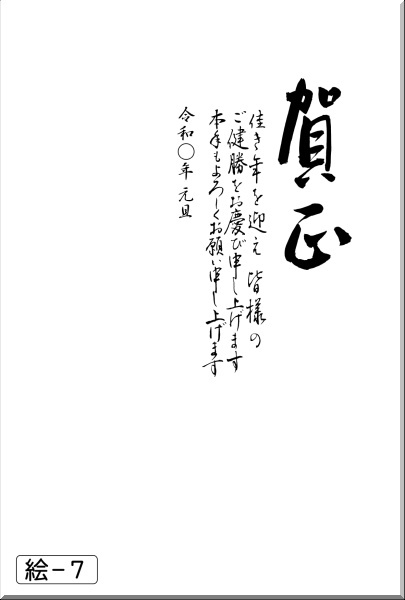 賀正
佳き年を迎え 皆様の
ご健勝をお慶び申し上げます
本年もよろしくお願い申し上げます
令和〇年 元旦
絵−7